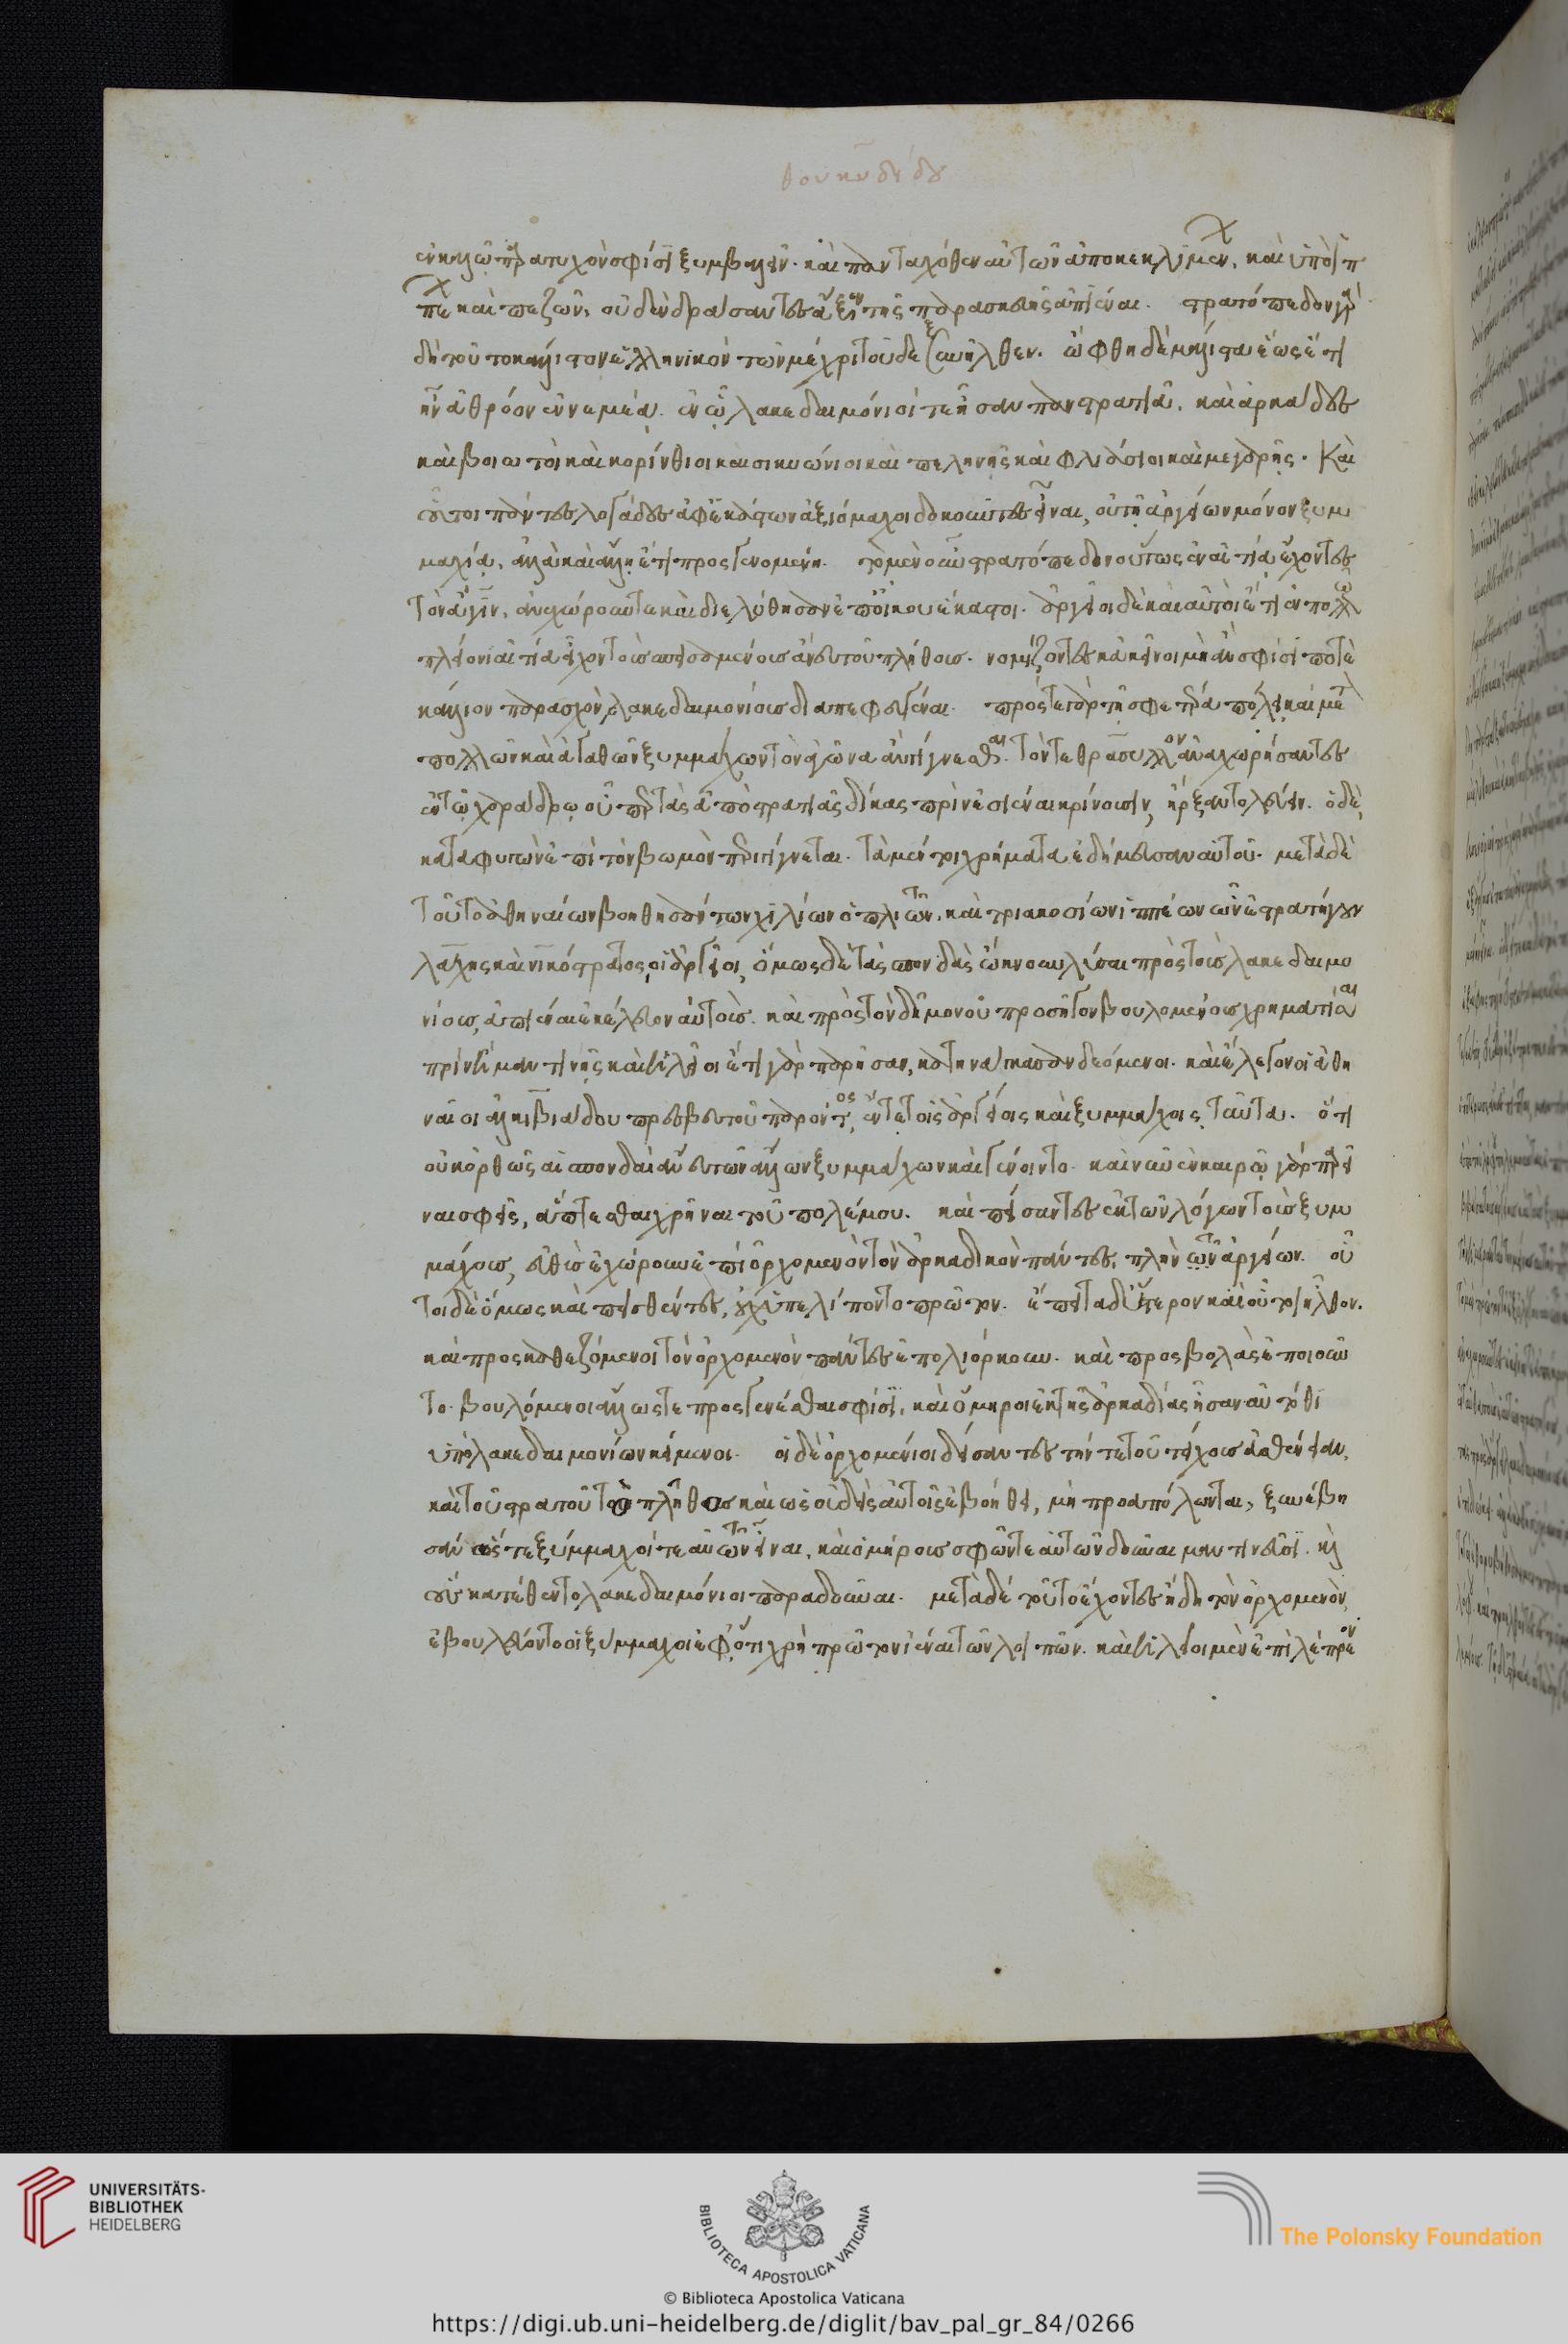 θουκυδίδου
ἐν καλῶ παρατυχὸν σφίσι ξυμβαλεῖν. καὶ πανταχόθεν αὐτῶν ἀποκεκλιμέν. καὶ ὑπὸ ἱπ
πέ καὶ πεζῶν, οὐδὲν δράσαντες ἄξιον τῆς παρασκευῆς ἀπιέναι. στρατόπεδον γὰρ
δὴ τοῦτο κάλλιστον ἑλληνικὸν τῶν μέχρι τοῦδε ξυνῆλθεν. ὤφθη δὲ μάλιστα ἕως ἔτι
ἦν ἀθρόον ἐν νεμέᾳ. ἐν ᾧ λακεδαιμόνιοί τε ἦσαν πανστρατιᾶ. καὶ ἀρκάδες
καὶ βοιωτοὶ καὶ κορίνθιοι καὶ σικυώνιοι καὶ πεληνῆς καὶ φλιάσιοι καὶ μεγαρῆς. Καὶ
οὗτοι πάντες λογάδες ἀφ' ἑκάστων ἀξιόμαχοι δοκοῦντες εἶναι, οὐ τῇ ἀργείων μόνον ξυμ
μαχίᾳ, ἀλλὰ καὶ ἄλλῃ ἔτι προσγενομένη. τὸ μὲν οὖν στρατόπεδον οὕτως ἐν αἰτίᾳ ἔχοντες
τὸν ἆγιν, ἀνεχώρουν τε καὶ διελύθησαν ἐπ' οἴκου ἕκαστοι. ἀργεῖοι δὲ καὶ αὐτοὶ ἔτι ἐν πολλῶ
πλέονι αἰτίᾳ εἶχον τοὺς σπεισαμένους ἄνευ τοῦ πλήθους. νομίζοντες κἀκεῖνοι μὴ ἂν σφίσι ποτὲ
κάλλιον παρασχὸν, λακεδαιμονίους διαπεφευγέναι. πρός τε γὰρ τῇ σφετέρα πόλει καὶ μετ
πολλῶν καὶ ἀγαθῶν ξυμμάχων τὸν ἀγῶνα ἂν γίγνεσθαι. τόν τε θράσυλλον ἀναχωρήσαντες
ἐν τῷ χαράδρῳ οὗ τὰς ἀπὸ στρατιᾶς δίκας πρὶν ἐσιέναι κρίνουσιν, ἤρξαντο λεύειν. ὁ δὲ,
καταφυγὼν ἐπὶ τὸν βωμὸν περιγίγνεται. τὰ μέντοι χρήματα ἐδήμευσαν αὐτοῦ. μετὰ δὲ
τοῦτο ἀθηναίων βοηθησάντων χιλίων ὁπλιτῶν, καὶ τριακοσίων ἱππέων ὧν ἐστρατήγουν
λάχης καὶ νικόστρατος, οἱ ἀργεῖοι, ὅμως δὲ τὰς σπονδὰς ὤκνουν λῦσαι πρὸς τοὺς λακεδαιμο
νίους, ἀπιέναι ἐκέλευον αὐτούς. καὶ πρὸς τὸν δῆμον οὐ προσῆγον βουλομένους χρηματίσαι
πρὶν δὴ μαντινῆς καὶ ἠλεῖοι ἔτι γὰρ παρῆσαν, κατηνάγκασαν δεόμενοι. καὶ ἔλεγον οἱ ἀθη
ναῖοι ἀλκιβιάδου πρεσβευτοῦ παρόντος, ἔν τε τοῖς ἀργείοις καὶ ξυμμάχοις ταῦτα. ὅτι
οὐκ ὀρθῶς αἱ σπονδαὶ ἄνευ τῶν ἄλλων ξυμμάχων καὶ γένοιντο. καὶ νῦν ἐν καιρῷ γὰρ παρεῖ
ναι σφεῖς, ἅπτεσθαι χρῆναι τοῦ πολέμου. καὶ πείσαντες ἐκ τῶν λόγων τοὺς ξυμ
μάχους, εὐθὺς ἐχώρουν ἐπὶ ὀρχομενὸν τὸν ἀρκαδικὸν πάντες, πλὴν τῶν ἀργείων. οὗ
τοι δὲ ὅμως καὶ πεισθέντες, οὐχ ὑπελίποντο πρῶτον. ἔπειτα δ' ὕστερον καὶ οὗτοι ἦλθον.
καὶ προσκαθεζόμενοι τὸν ὀρχομενὸν πάντες ἐπολιόρκουν. καὶ προσβολὰς ἐποιοῦν
το. βουλόμενοι ἄλλως τε προσγενέσθαι σφίσι, καὶ ὅμηροι ἐκ τῆς ἀρκαδίας ἦσαν αὐτόθι
ὑπὸ λακεδαιμονίων κείμενοι. οἱ δὲ ὀρχομένιοι δείσαντες τήν τε τοῦ τείχους ἀσθένειαν,
καὶ τοῦ στρατοῦ τὸ πλῆθος καὶ ὡς οὐδεὶς αὐτοῖς ἐβοήθει, μὴ προαπόλωνται, ξυνέβη
σαν ὥστε ξύμμαχοί τε αὐτῶν εἶναι, καὶ ὁμήρους σφῶν τε αὐτῶν δοῦναι μαντινεῦσι. καὶ
οὓς κατέθεντο λακεδαιμόνιοι παραδοῦναι. μετὰ δὲ τοῦτο ἔχοντες ἤδη τὸν ὀρχομενὸν,
ἐβουλεύοντο οἱ ξύμμαχοι ἐφ' ὅ,τι χρὴ πρῶτον ἰέναι τῶν λοιπῶν. καὶ ἠλεῖοι μὲν ἐπὶ λέπρεον
UNIVERSITÄTS-
BIBLIOTHEK
HEIDELBERG
BIBLIOTECA APOSTOLICA VATICANA
The Polonsky Foundation
© Biblioteca Apostolica Vaticana
https://digi.ub.uni-heidelberg.de/diglit/bav_pal_gr_84/0266